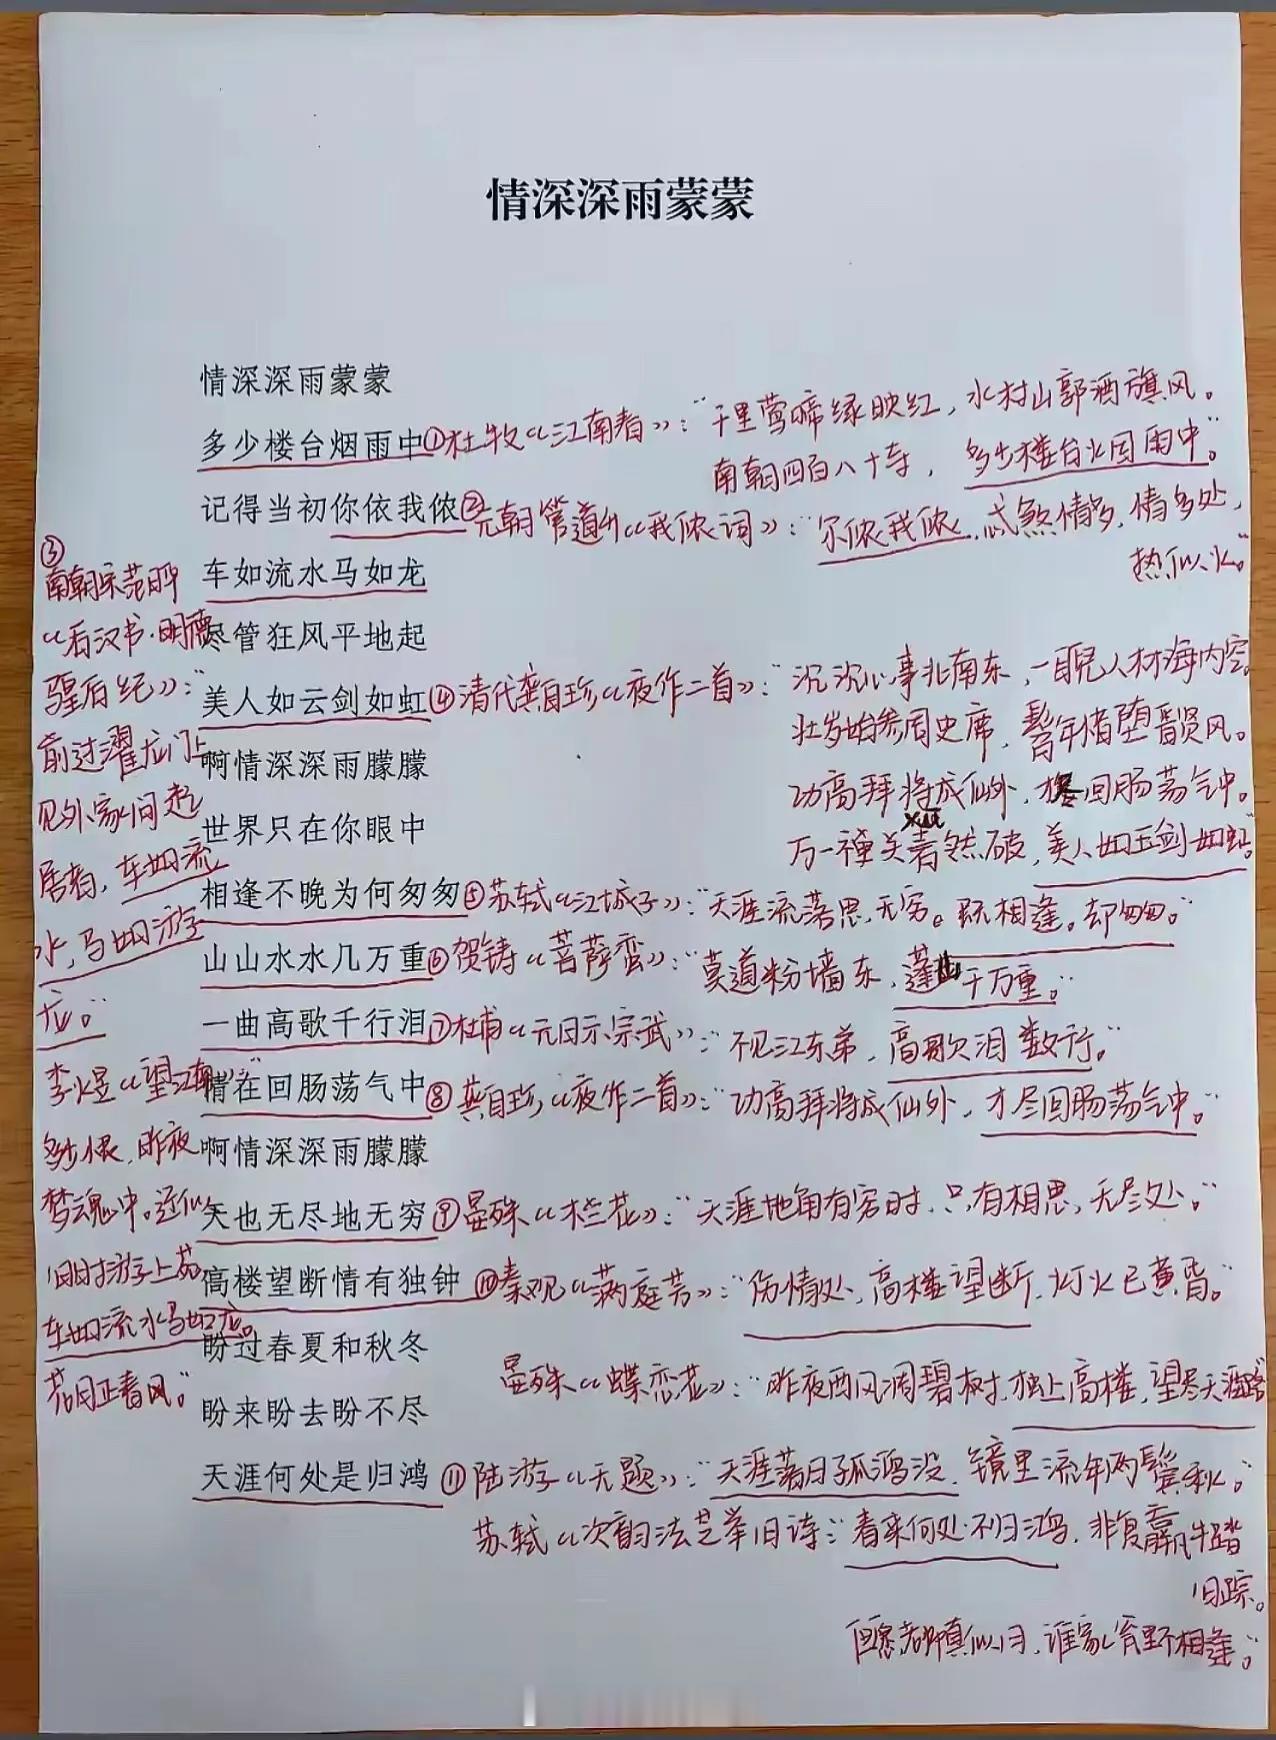 情深深雨蒙蒙
情深深雨蒙蒙
多少楼台烟雨中①杜牧《江南春》:"千里莺啼绿映红,水村山郭酒旗风。
南朝四百八十寺,多少楼台烟雨中。"
记得当初你依我侬②元朝管道升《我侬词》:"尔侬我侬,忒煞情多,情多处,
热似火。"
车如流水马如龙
③
南朝宋范晔
《后汉书·明德
皇后纪》:"
前过濯龙门上
见外家问起
居者,车如流
水,马如游
龙。"
李煜《望江南》:"
多少恨,昨夜
梦魂中。还似
旧时游上苑
车如流水马如龙。
花月正春风。"
尽管狂风平地起
美人如云剑如虹④清代龚自珍《夜作二首》:"沉沉心事北南东,一睨人材海内空。
壮岁始参周史席,髫年惜堕晋贤风。
功高拜将成仙外,才尽回肠荡气中。
万一禅关砉然破,美人如玉剑如虹。"
xū
啊情深深雨朦朦
世界只在你眼中
相逢不晚为何匆匆⑤苏轼《江城子》:"天涯流落思无穷。既相逢。却匆匆。"
山山水水几万重⑥贺铸《菩萨蛮》:"莫道粉墙东,蓬山千万重。"
一曲高歌千行泪⑦杜甫《元日示宗武》:"不见江东弟,高歌泪数行。"
情在回肠荡气中⑧龚自珍《夜作二首》:"功高拜将成仙外,才尽回肠荡气中。"
啊情深深雨朦朦
天也无尽地无穷⑨晏殊《木兰花》:"天涯地角有穷时,只有相思,无尽处。"
高楼望断情有独钟⑩秦观《满庭芳》:"伤情处,高楼望断,灯火已黄昏。"
盼过春夏和秋冬
晏殊《蝶恋花》:"昨夜西风凋碧树,独上高楼,望尽天涯路
盼来盼去盼不尽
天涯何处是归鸿⑪陆游《无题》:"天涯落日孤鸿没,镜里流年两鬓秋。"
苏轼《次韵法芝举旧诗:"春来何处不归鸿,非复羸牛踏
旧踪。
但愿老师真似月,谁家瓮里不相逢。"